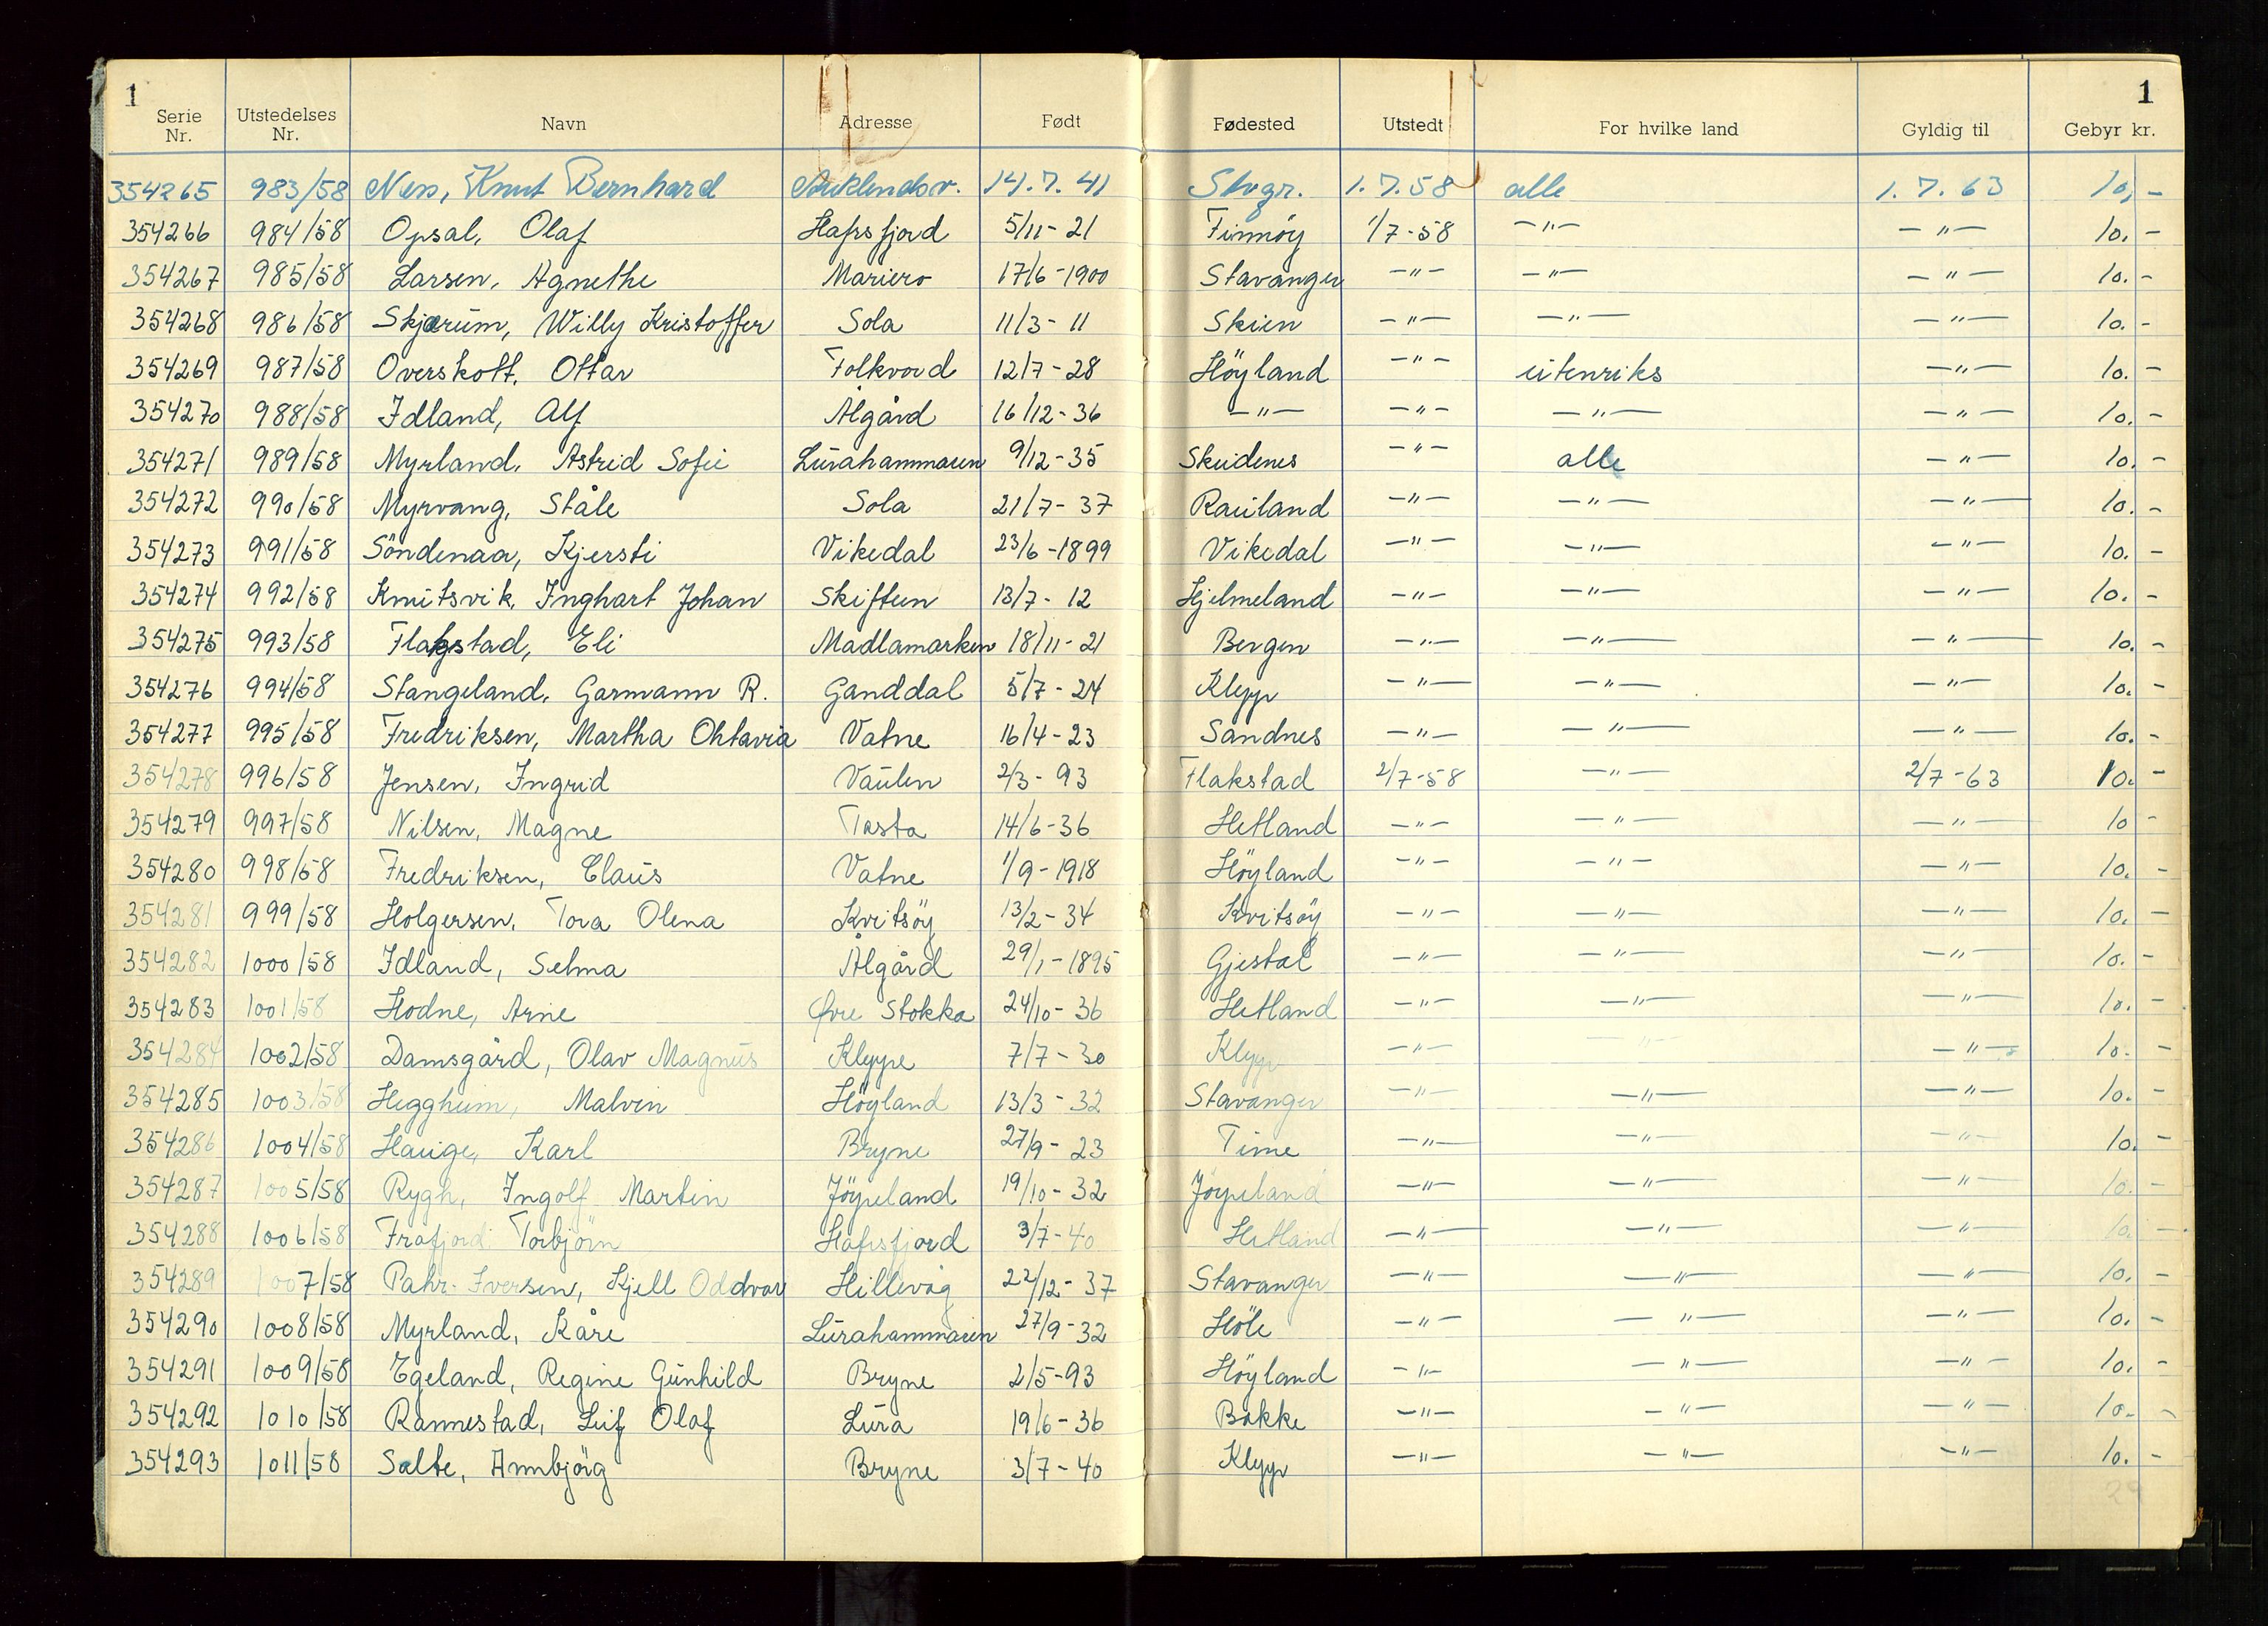 1 1
Serie Nr. Utstedelses Nr. Navn Adresse Født Fødested Utstedt For hvilke land Gyldig til Gebyr kr.
354265 983/58 Ness, Knut Bernhard 14.7.41 Stvgr. 1.7.58 alle 1.7.63 10,-
354266 984/58 Opsal, Olaf Hafrsfjord 5/11-21 Finnöy 1/7-58 -"- -"- 10.-
354267 985/58 Larsen, Agnethe Mariero 17/6-1900 Stavanger -"- -"- -"- 10.-
354268 986/58 Skjærum, Willy Kristoffer Sola 11/3-11 Skien -"- -"- -"- 10.-
354269 987/58 Overskott, Ottar Folkvord 12/7-28 Höyland -"- utenriks -"- 10.-
354270 988/58 Idland, Alf Ålgård 16/12-36 -"- -"- -"- -"- 10.-
354271 989/58 Myrland, Astrid Sofie Lurahammaren 9/12-35 Skudenes -"- alle -"- 10.-
354272 990/58 Myrvang, Ståle Sola 21/7-37 Rauland -"- -"- -"- 10.-
354273 991/58 Söndenaa, Kjersti Vikedal 23/6-1899 Vikedal -"- -"- -"- 10.-
354274 992/58 Knutsvik, Inghart Johan Skiftun 13/7-12 Hjelmeland -"- -"- -"- 10.-
354275 993/58 Flakstad, Eli Madlamarken 18/11-21 Bergen -"- -"- -"- 10.-
354276 994/58 Stangeland, Garmann R. Ganddal 5/7-24 Klepp -"- -"- -"- 10.-
354277 995/58 Fredriksen, Martha Oktavia Vatne 16/4-23 Sandnes -"- -"- -"- 10.-
354278 996/58 Jensen, Ingrid Vaulen 2/3-93 Flakstad 2/7-58 -"- 2/7-63 10.-
354279 997/58 Nilsen, Magne Tasta 14/6-36 Hetland -"- -"- -"- 10-
354280 998/58 Fredriksen, Claus Vatne 1/9-1918 Höyland -"- -"- -"- 10.-
354281 999/58 Holgersen, Tora Olena Kvitsöy 13/2-34 Kvitsöy -"- -"- -"- 10.-
354282 1000/58 Idland, Selma Ålgård 29/1-1895 Gjestal -"- -"- -"- 10.-
354283 1001/58 Hodne, Arne Øvre Stokka 24/10-36 Hetland -"- -"- -"- 10.-
354284 1002/58 Damsgård, Olav Magnus Kleppe 7/7-30 Klepp -"- -"- -"- 10.-
354285 1003/58 Heggheim, Malvin Höyland 13/3-32 Stavanger -"- -"- -"- 10.-
354286 1004/58 Hauge, Karl Bryne 27/9-23 Time -"- -"- -"- 10.-
354287 1005/58 Rygh, Ingolf Martin Jöpeland 19/10-32 Jöpeland -"- -"- -"- 10.-
354288 1006/58 Frafjord Torbjörn Hafrsfjord 3/7-40 Hetland -"- -"- -"- 10.-
354289 1007/58 Pahr-Iversen, Kjell Oddvar Hillevåg 22/12-37 Stavanger -"- -"- -"- 10.-
354290 1008/58 Myrland, Kåre Lurahammaren 27/9-32 Höle -"- -"- -"- 10.-
354291 1009/58 Egeland, Regine Gunhild Bryne 2/5-93 Höyland -"- -"- -"- 10.-
354292 1010/58 Rannestad, Leif Olaf Lura 19/6-36 Bakke -"- -"- -"- 10.-
354293 1011/58 Salte, Annbjörg Bryne 3/7-40 Klepp -"- -"- -"- 10.-
29